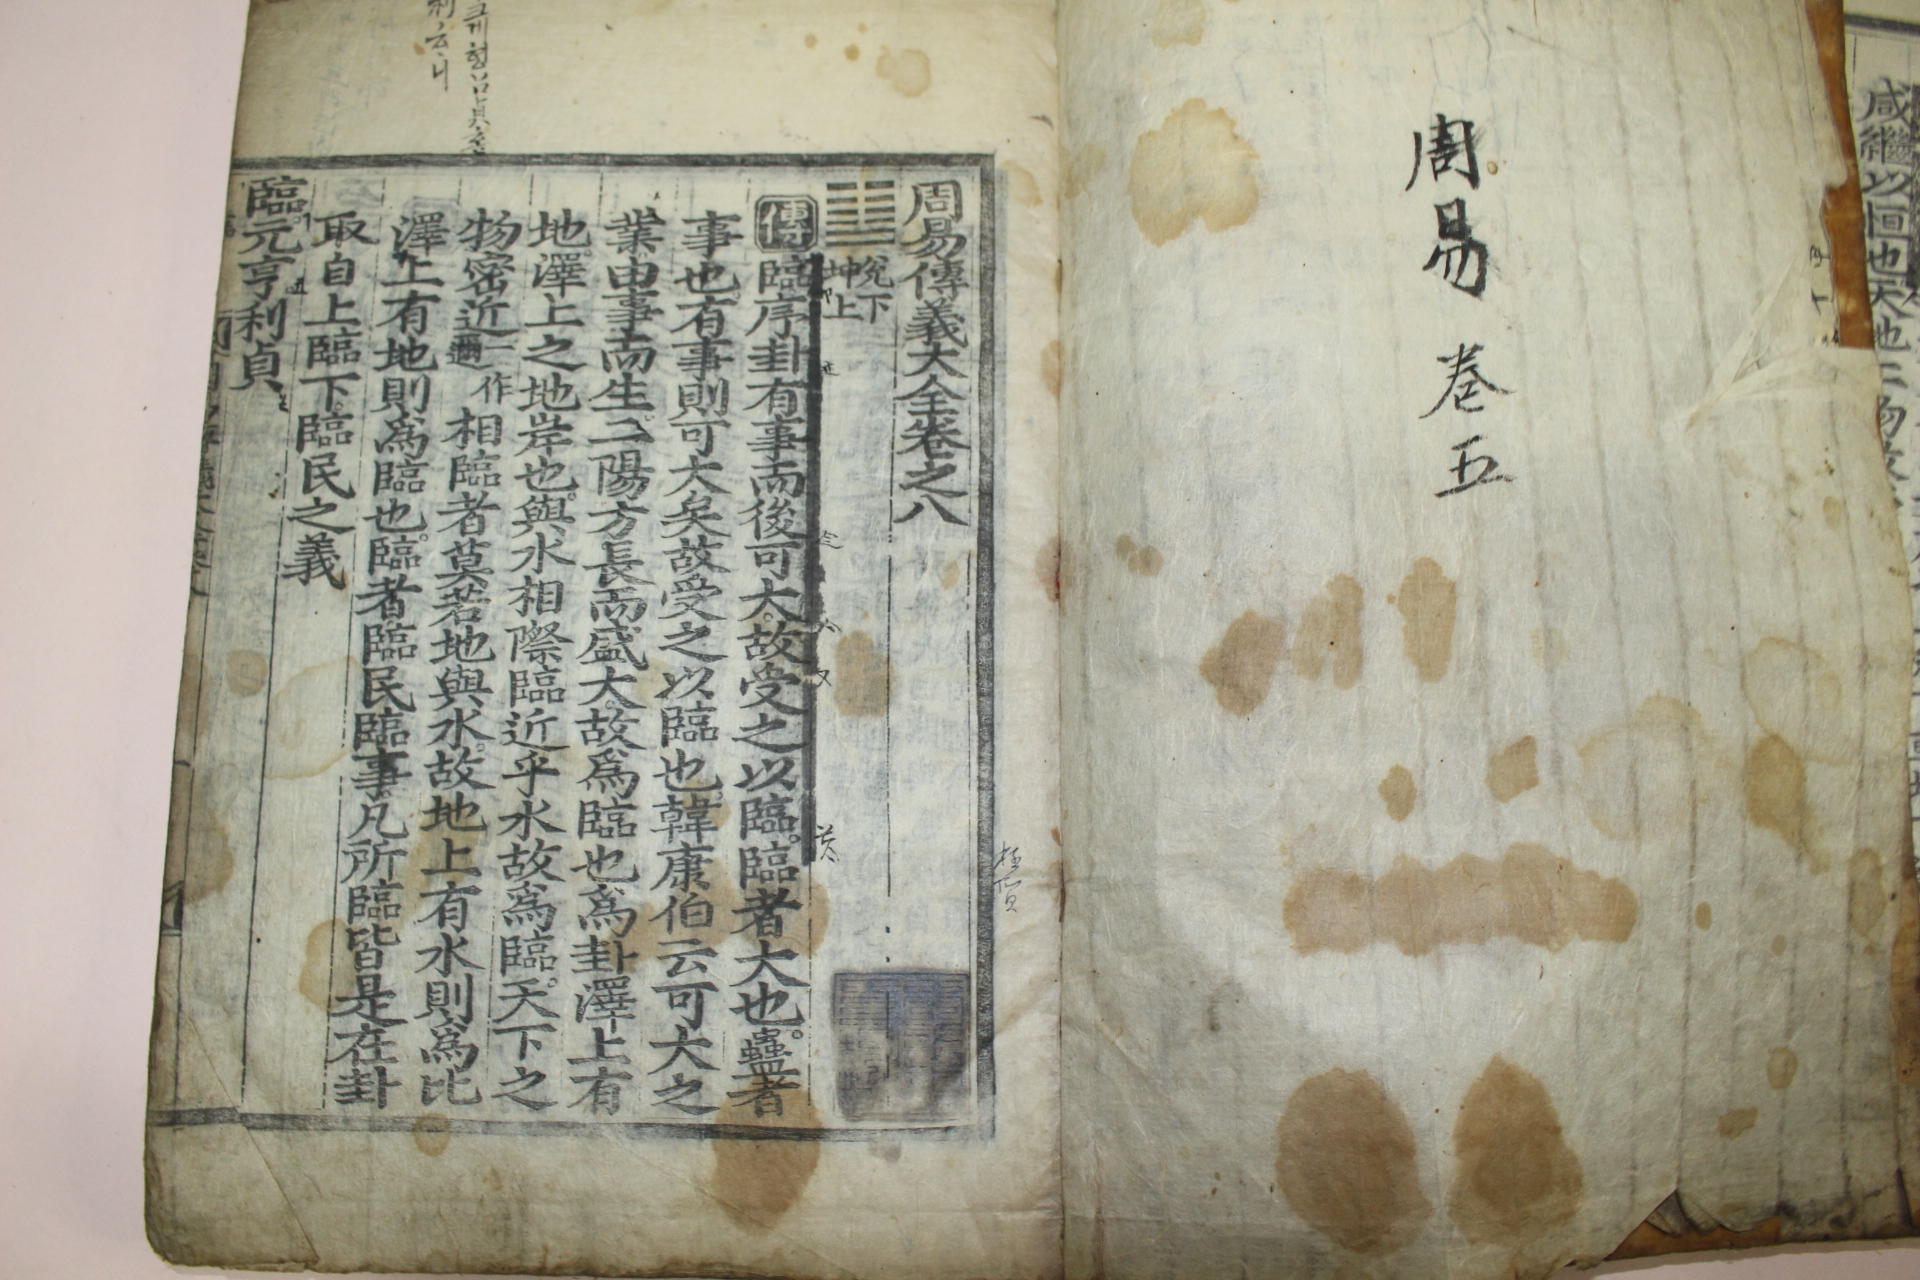 周易 卷五
周易傳義大全卷之八
兌下
坤上
傳臨序卦有事而後可大故受之以臨臨者大也蠱者
事也有事則可大矣故受之以臨也韓康伯云可大之
業由事而生二陽方長而盛大故爲臨也爲卦澤上有
地澤上之地岸也與水相際臨近乎水故爲臨天下之
物密近一作邇相臨者莫若地與水故地上有水則爲比
澤上有地則爲臨也臨者臨民臨事凡所臨皆是在卦
取自上臨下臨民之義
臨元亨利貞